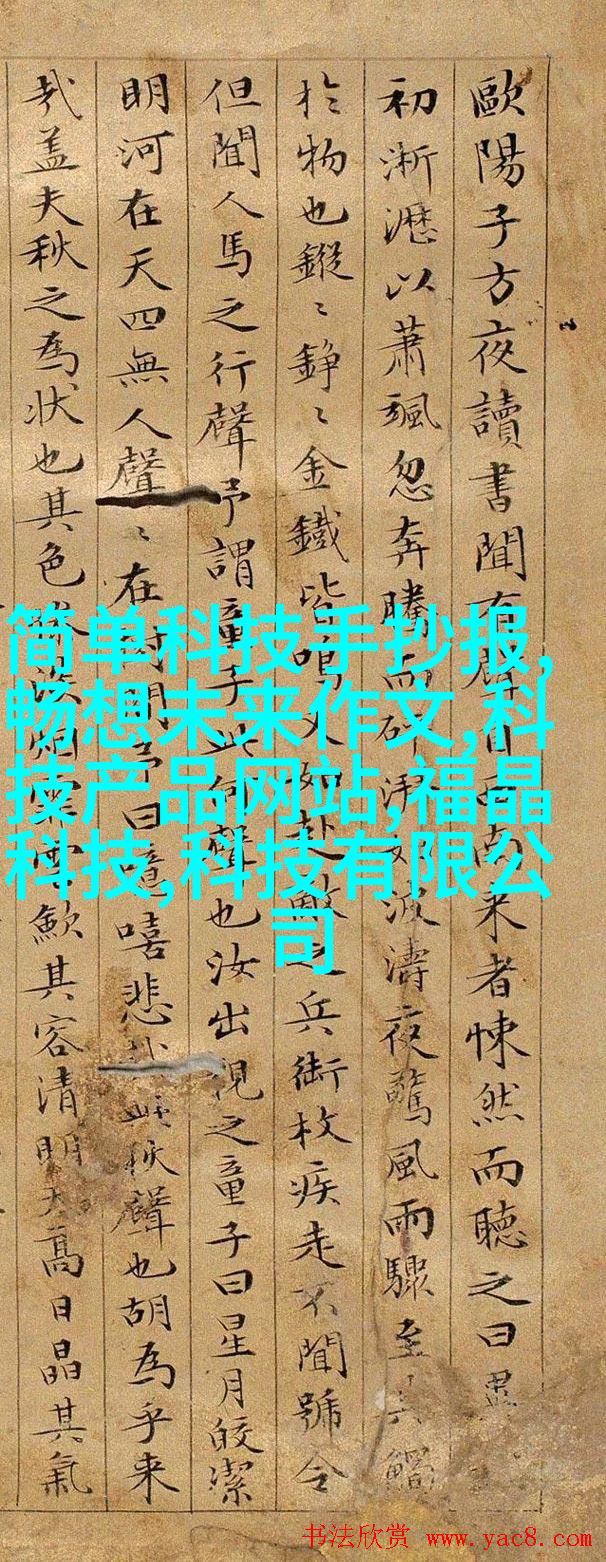 歐陽子方夜讀書聞有聲自西南來者悚然而聽之曰異
初淅瀝以蕭颯忽奔騰而砰湃如波濤夜驚風雨驟至其觸
於物也鏦〻錚〻金鐵皆鳴又如赴敵之兵銜枚疾走不聞號令
但聞人馬之行聲予謂童子此何聲也汝出視之童子曰星月皎潔
明河在天四無人聲〻在樹間予曰噫嘻悲哉此秋聲也胡為乎來
哉盖夫秋之為狀也其色慘淡烟霏雲歛其容清明天高日晶其氣
简单科技手抄报,
畅想未来作文,科
技产品网站,福晶
科技,科技有限公
司
书法欣赏 www.yac8.com